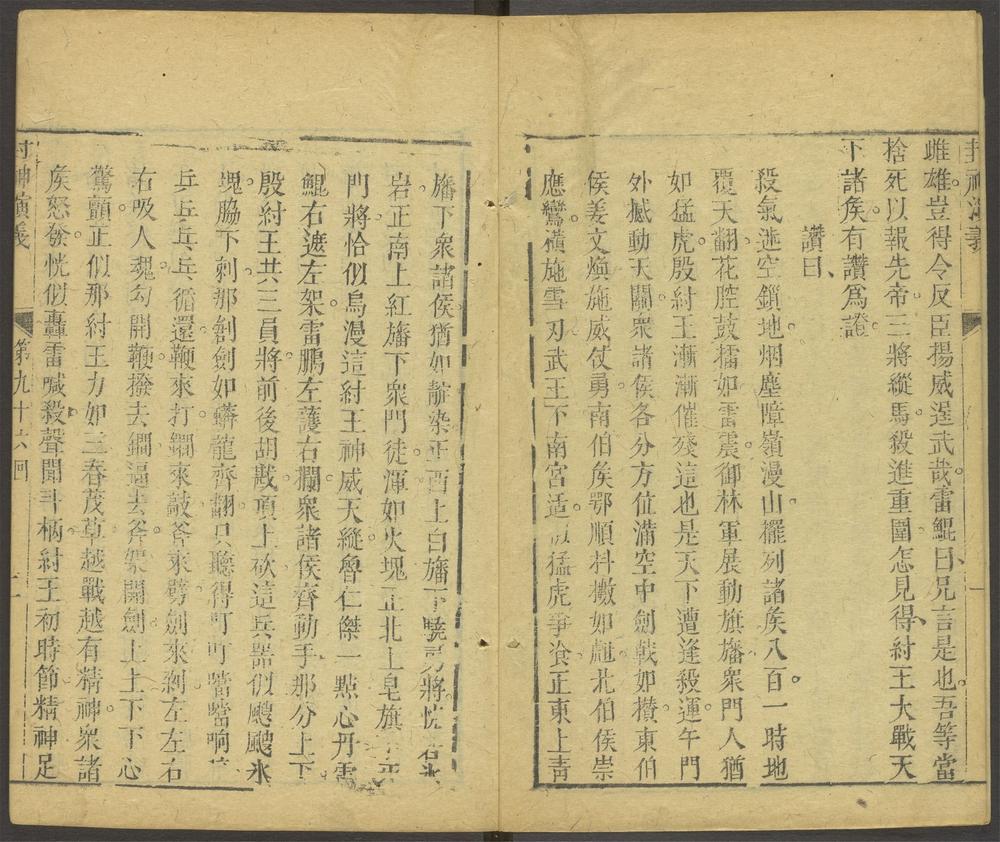 封神演義
雌雄豈得令反臣揚威逞武哉雷鯤曰兄言是也吾等當
捨死以報先帝三將縱馬殺進重圍怎見得紂王大戰天
下諸侯有讚為證
讚曰
殺氣迷空鎖地烟塵障嶺漫山擺列諸侯八百一時地
覆天翻花腔鼓擂如雷震御林軍展動旗旛眾門人猶
如猛虎殷紂王漸漸催殘這也是天下遭逢殺運午門
外撼動天關眾諸侯各分方位滿空中劍戟如攅東伯
侯姜文煥施威仗勇南伯侯鄂順抖擻如彪北伯侯崇
應鸞橫施雪刃武王下南宮适猛虎爭飡正東上青
一
旛下眾諸侯猶如靛染正酉上白旛下驍勇將恍若氷
岩正南上紅旛下眾門徒渾如火塊正北上皂旗
門將恰似烏漫這紂王神威天縱魯仁傑一點心丹雷
鯤右遮左架雷鵬左護右攔眾諸侯齊動手那分上下
殷紂王共三員將前後胡戡頂上砍這兵器似颼颼氷
塊脇下刺那劊劍如蟒龍齊翻只聽得叮叮噹噹响
乒乒乓乓循還鞭來打鐧來敲斧來劈劍來剁左左右
右吸人魂勾開鞭撥去鐧逼去斧架開劍上上下下心
驚顫正似那紂王力如三春茂草越戰越有精神眾諸
侯怒發恍似轟雷喊殺聲聞斗柄紂王初時節精神足
封神演義
第九十六回
二